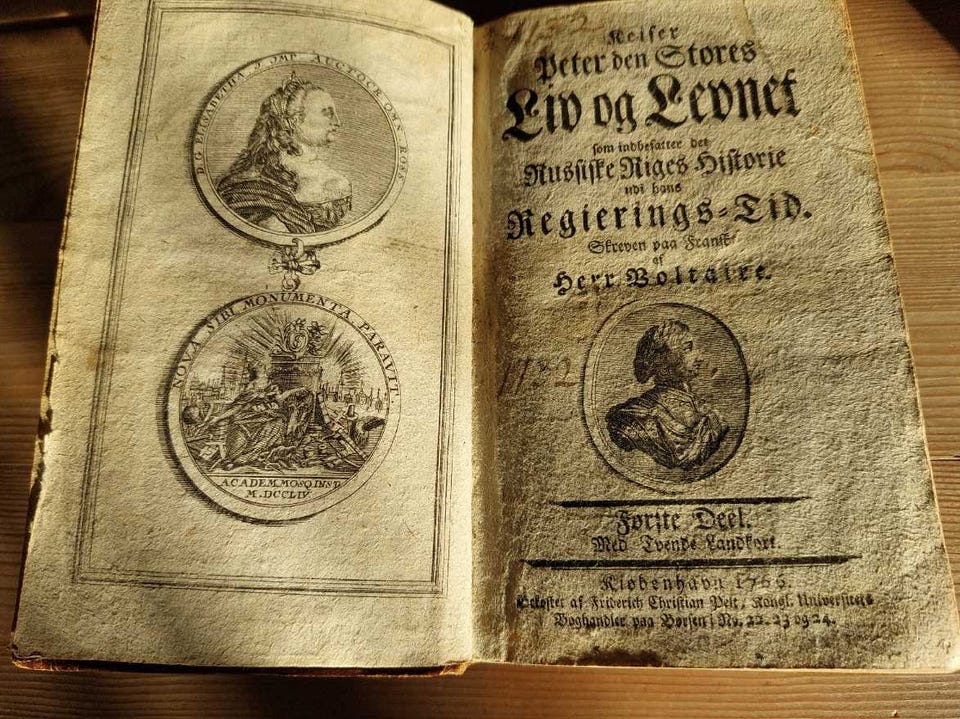 D. G. ELISABETHA I. IMP. AUGFOCR. OMN. ROSS.
NOVA SIBI MONUMENTA PARAVIT.
ACADEM. MOSQ. INST.
M.DCCLIV.
Keiser
Peter den Stores
Liv og Levnet
som indbefatter det
Russiske Riges Historie
udi hans
Regierings-Tid.
Skreven paa Fransk
af
Herr Voltaire.
1132
Første Deel.
Med Tvende Landkort.
Kiøbenhavn 1766.
Bekostet af Friderich Christian Pelt, Kongl. Universitets
Boghandler paa Børsen, No. 22. 23 og 24.